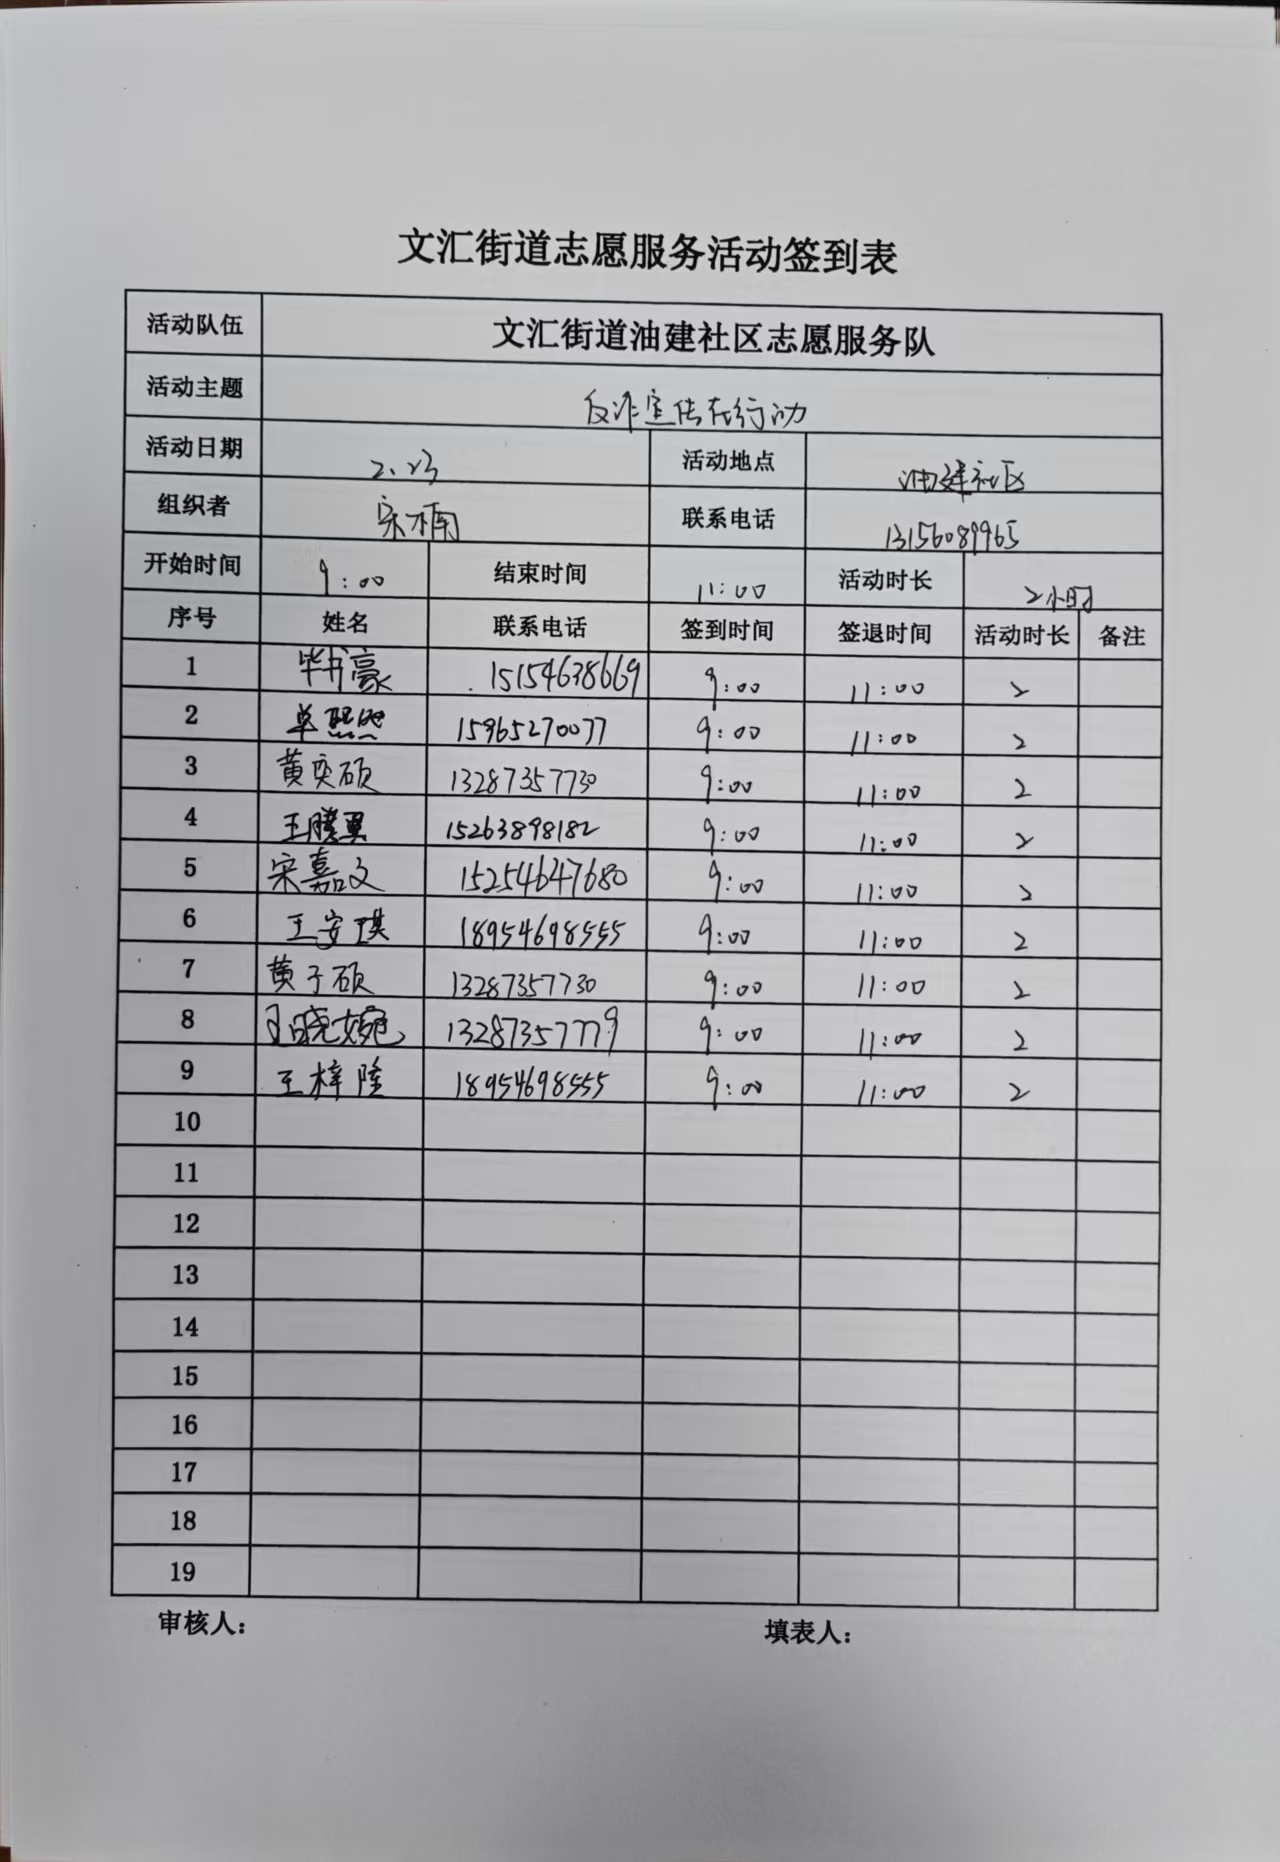 文汇街道志愿服务活动签到表
活动队伍 文汇街道油建社区志愿服务队
活动主题 反诈宣传在行动
活动日期 2.23 活动地点 油建社区
组织者 宋楠 联系电话 13156089965
开始时间 9:00 结束时间 11:00 活动时长 2小时
序号 姓名 联系电话 签到时间 签退时间 活动时长 备注
1 毕书豪 15154638669 9:00 11:00 2
2 单熙 15965270077 9:00 11:00 2
3 黄奕硕 13287357730 9:00 11:00 2
4 王腾翼 15263898182 9:00 11:00 2
5 宋嘉文 15254647680 9:00 11:00 2
6 王安琪 18954698555 9:00 11:00 2
7 黄子硕 13287357730 9:00 11:00 2
8 王晓婉 13287357779 9:00 11:00 2
9 王梓隆 18954698555 9:00 11:00 2
10
11
12
13
14
15
16
17
18
19
审核人： 填表人：